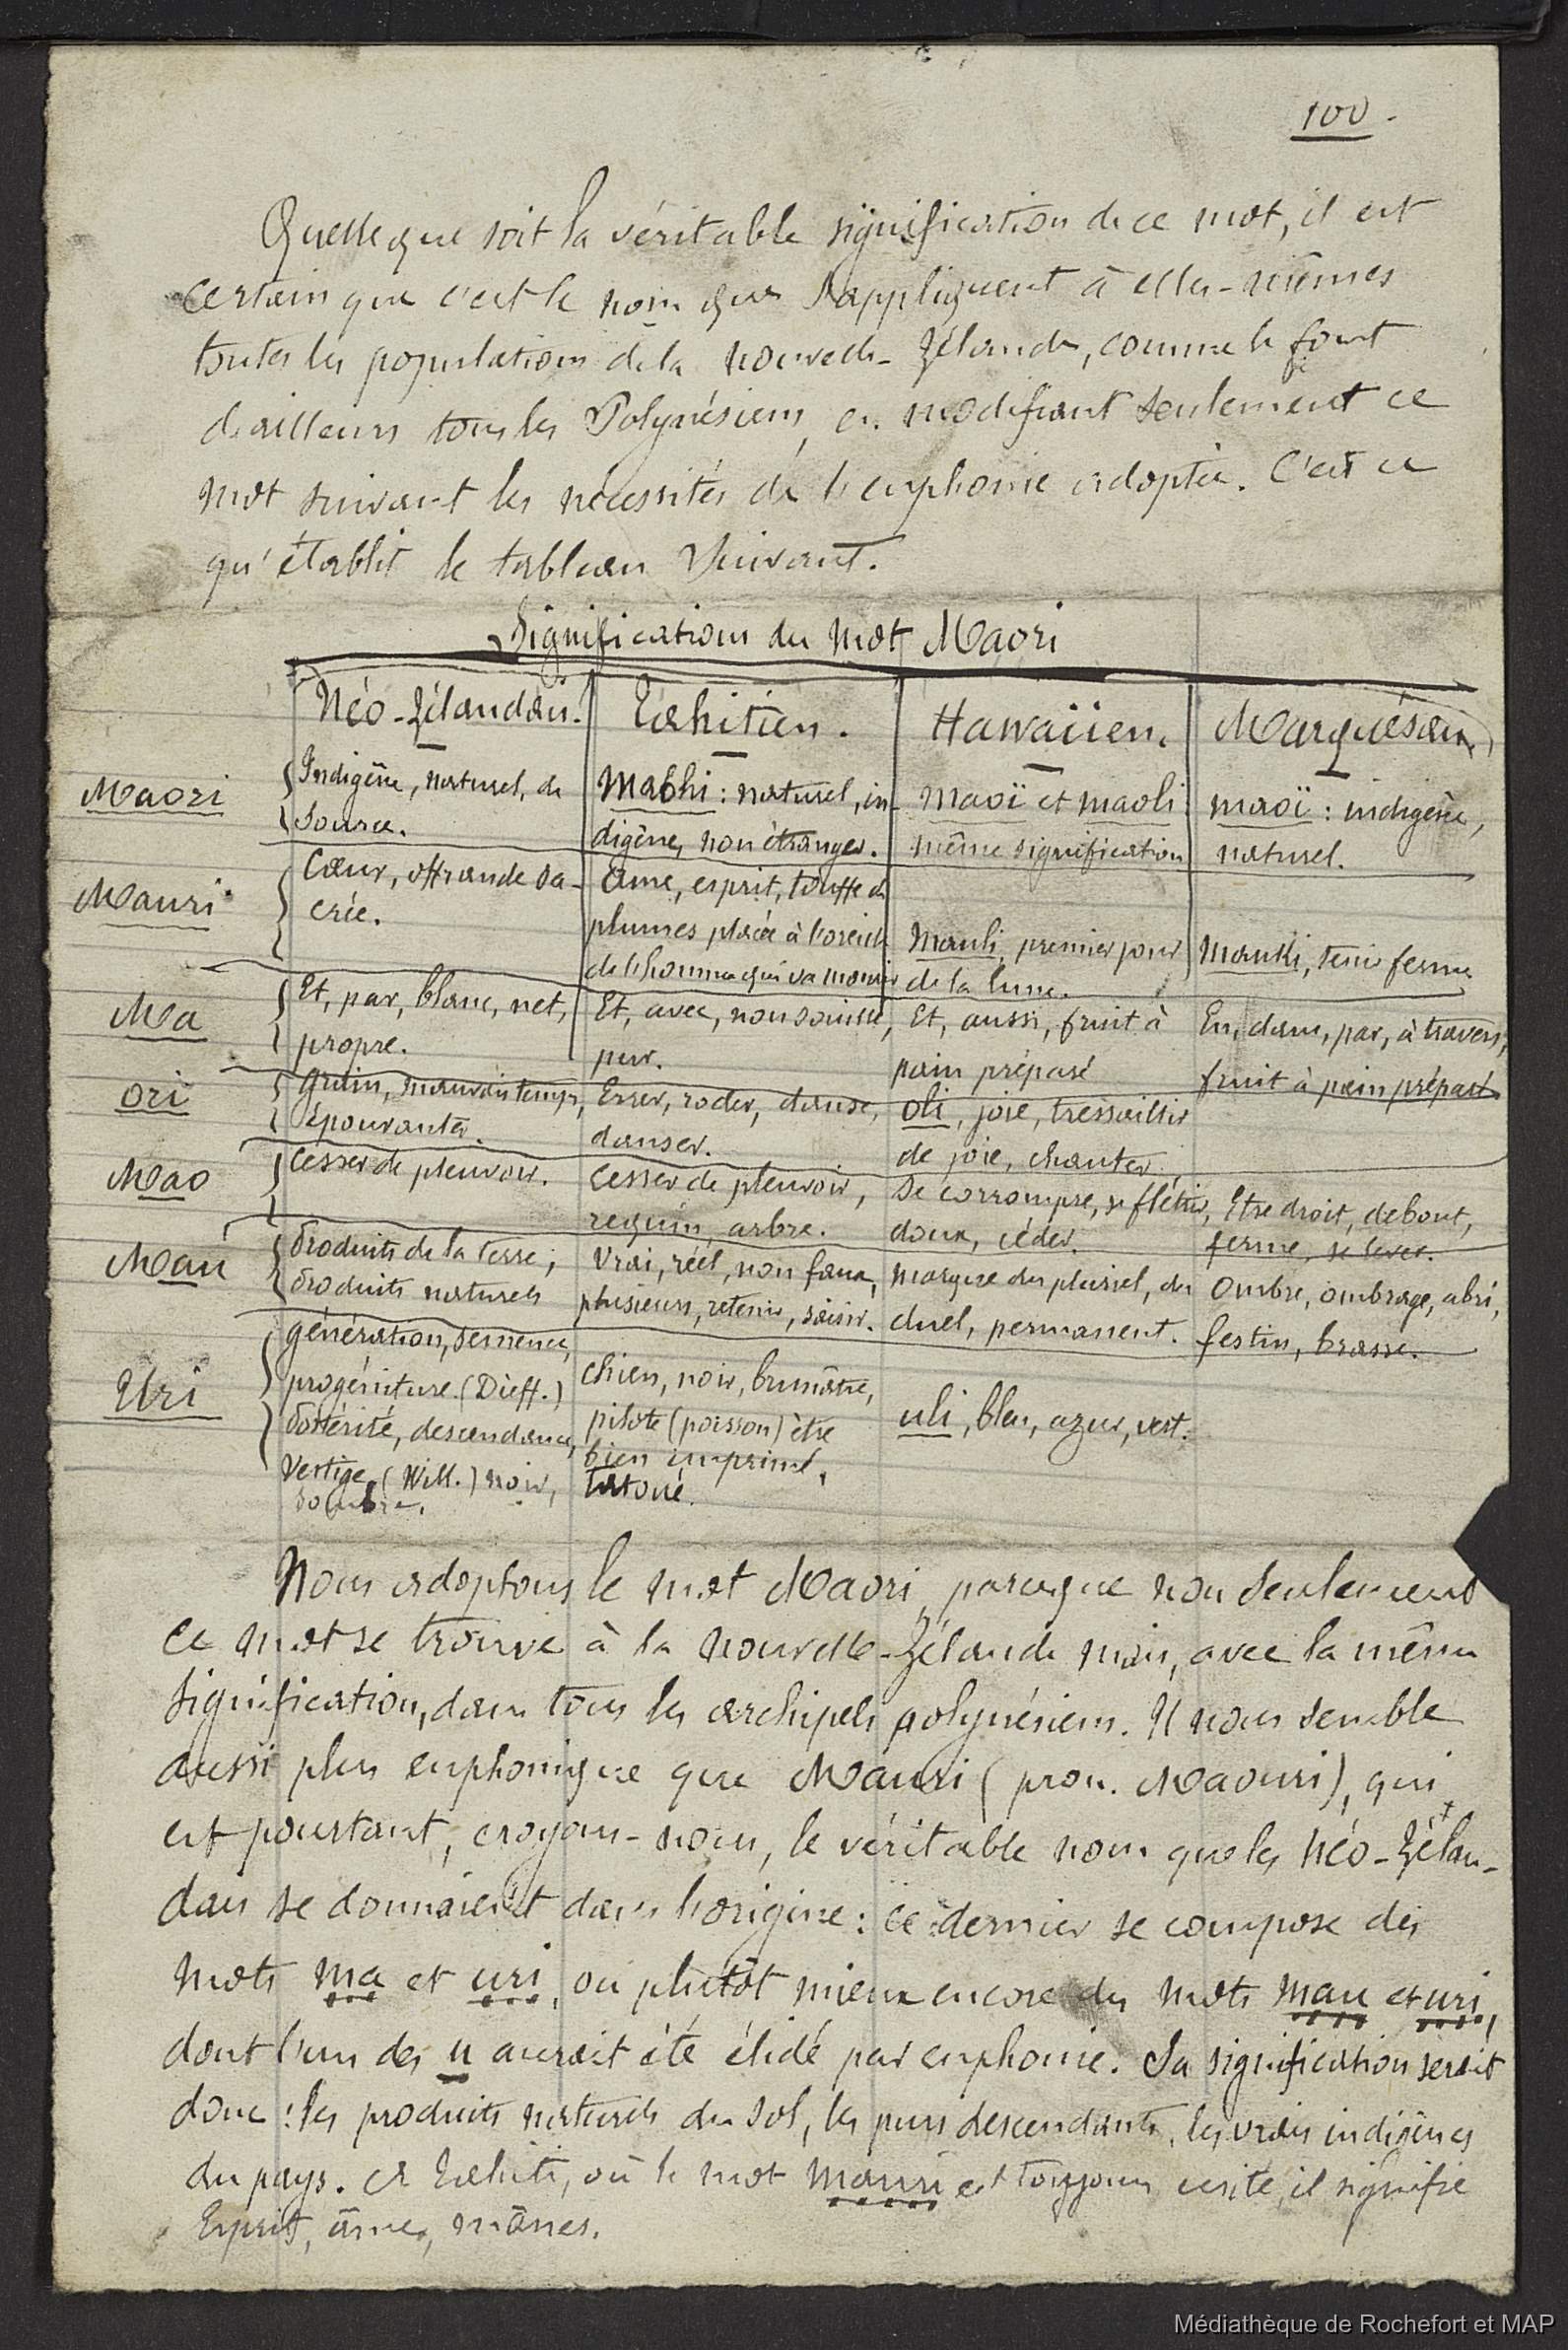 100.
Quelle que soit la véritable signification de ce mot, il est
certain que c'est le nom que s'appliquent à elles-mêmes
toutes les populations de la Nouvelle-Zélande, comme le font
d'ailleurs tous les Polynésiens, en modifiant seulement ce
mot suivant les nécessités de l'euphonie adoptée. C'est ce
qu'établit le tableau suivant.
Significations du mot Maori
Néo-Zélandais. Tahitien. Hawaiien. Marquésan
Maori
Indigène, naturel, de
source.
Maohi : naturel, in-
digène, non étranger.
maoï et maoli
même signification
maoï : indigène,
naturel.
Mauri
Cœur, offrande sa-
crée.
âme, esprit, touffe de
plumes placée à l'oreille
de l'homme qui va mourir
Mauli, premier jour
de la lune.
Mauki, tenir ferme
Ma
Et, par, blanc, net,
propre.
Et, avec, non souillé,
pur.
Et, aussi, fruit à
pain préparé
En, dans, par, à travers,
fruit à pain préparé
ori
Grain, mauvais temps,
épouvanter.
Errer, roder, danse,
danser.
oli, joie, tressaillir
de joie, chanter.
Mao
Cesser de pleuvoir.
Cesser de pleuvoir,
requin, arbre.
Se corrompre, se flétrir,
doux, céder.
Etre droit, debout,
ferme, se lever.
Mau
Produits de la terre,
Produits naturels
Vrai, réel, non faux,
plusieurs, retenir, saisir.
Marque du pluriel, du
duel, permanent.
Ombre, ombrage, abri,
festin, brasse.
Uri
génération, semence,
progéniture. (Dieff.)
Postérité, descendance,
Vestige, (Will.) noir,
sombre.
chien, noir, brunâtre,
pilote (poisson) être
bien imprimé,
tatoué.
uli, bleu, azur, vert.
Nous adoptons le mot Maori, parceque non seulement
ce mot se trouve à la Nouvelle-Zélande mais, avec la même
signification, dans tous les archipels polynésiens. Il nous semble
aussi plus euphonique que Mauri (pron. Maouri), qui
est pourtant, croyons-nous, le véritable nom que les Néo-Zélan-
dais se donnaient dans l'origine : ce dernier se compose des
mots ma et uri, ou plutôt mieux encore des mots mau et uri,
dont l'un des u aurait été élidé par euphonie. Sa signification serait
donc : les produits naturels du sol, les purs descendants, les vrais indigènes
du pays. A Tahiti, où le mot mauri est toujours usité, il signifie
Esprit, âme, mânes.
Médiathèque de Rochefort et MAP